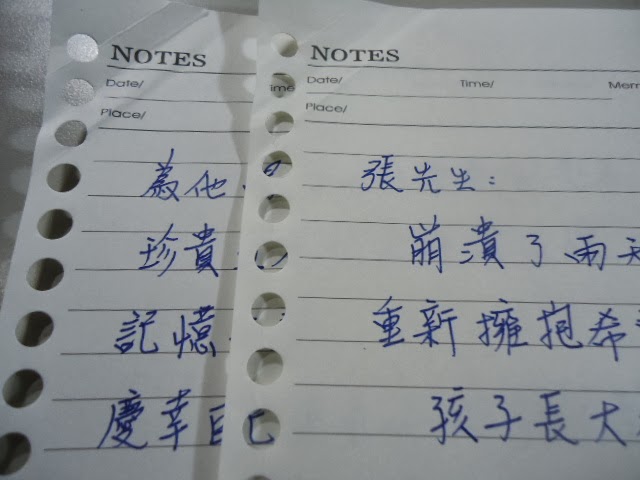 NOTES
Date/
Place/
為他
珍貴
記憶
慶幸自己
NOTES
Date/ Time/ Mem
Place/
張先生：
崩潰了兩天
重新擁抱希
孩子長大